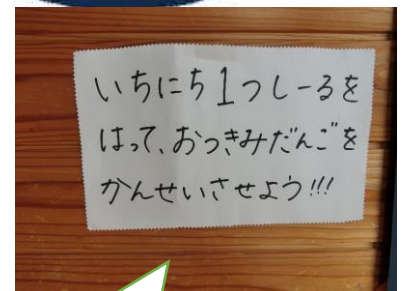 いちにち1つしーるを
はって、おつきみだんごを
かんせいさせよう!!!